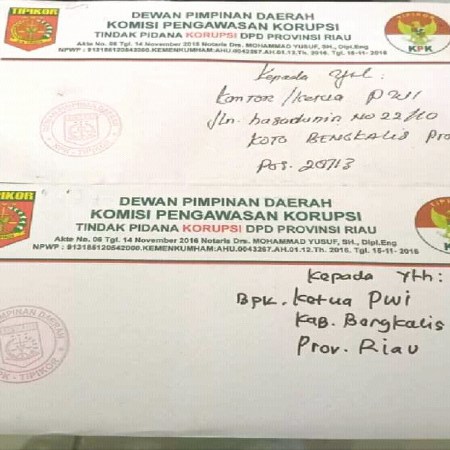 TIPIKOR
DEWAN PIMPINAN DAERAH
KOMISI PENGAWASAN KORUPSI
TINDAK PIDANA KORUPSI DPD PROVINSI RIAU
Akte No. 06 Tgl. 14 November 2016 Notaris Drs. MOHAMMAD YUSUF, SH., Dipl.Eng
NPWP : 913185120542000.KEMENKUMHAM:AHU.0043267.AH.01.12.Th. 2016. Tgl. 15-11-2016
KPK
Kepada Yth:
Kantor / Ketua PWI
Jln. No 22/10
KOTO BENGKALIS Pro
Pos. 28713
TIPIKOR
DEWAN PIMPINAN DAERAH
KOMISI PENGAWASAN KORUPSI
TINDAK PIDANA KORUPSI DPD PROVINSI RIAU
Akte No. 06 Tgl. 14 November 2016 Notaris Drs. MOHAMMAD YUSUF, SH., Dipl.Eng
NPWP : 913185120542000.KEMENKUMHAM:AHU.0043267.AH.01.12.Th. 2016. Tgl. 15-11-2016
KPK
Kepada Yth:
BPK. Ketua PWI
Kab. Bengkalis
Prov. Riau